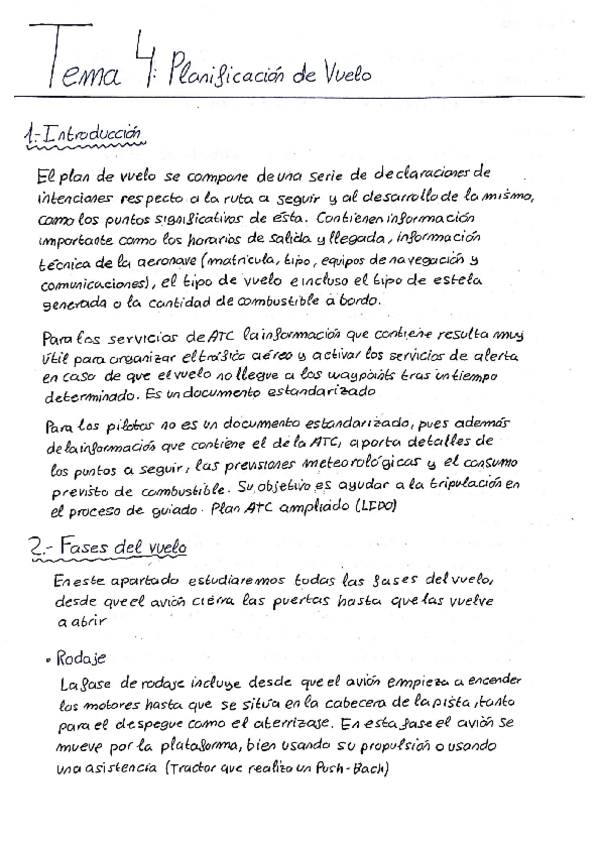 Tema 4: Planificación de Vuelo
1.- Introducción
El plan de vuelo se compone de una serie de declaraciones de
intenciones respecto a la ruta a seguir y al desarrollo de la misma,
como los puntos significativos de ésta. Contienen información
importante como los horarios de salida y llegada, información
técnica de la aeronave (matrícula, tipo, equipos de navegación y
comunicaciones), el tipo de vuelo e incluso el tipo de estela
generada o la cantidad de combustible a bordo.
Para los servicios de ATC la información que contiene resulta muy
útil para organizar el tráfico aéreo y activar los servicios de alerta
en caso de que el vuelo no llegue a los waypoints tras un tiempo
determinado. Es un documento estandarizado
Para los pilotos no es un documento estandarizado, pues además
de la información que contiene el de la ATC, aporta detalles de
los puntos a seguir, las previsiones meteorológicas y el consumo
previsto de combustible. Su objetivo es ayudar a la tripulación en
el proceso de guiado. Plan ATC ampliado (LIDO)
2.- Fases del vuelo
En este apartado estudiaremos todas las fases del vuelo,
desde que el avión cierra las puertas hasta que las vuelve
a abrir
• Rodaje
La fase de rodaje incluye desde que el avión empieza a encender
los motores hasta que se sitúa en la cabecera de la pista, tanto
para el despegue como el aterrizaje. En esta fase el avión se
mueve por la plataforma, bien usando su propulsión o usando
una asistencia (Tractor que realiza un Push-Back)